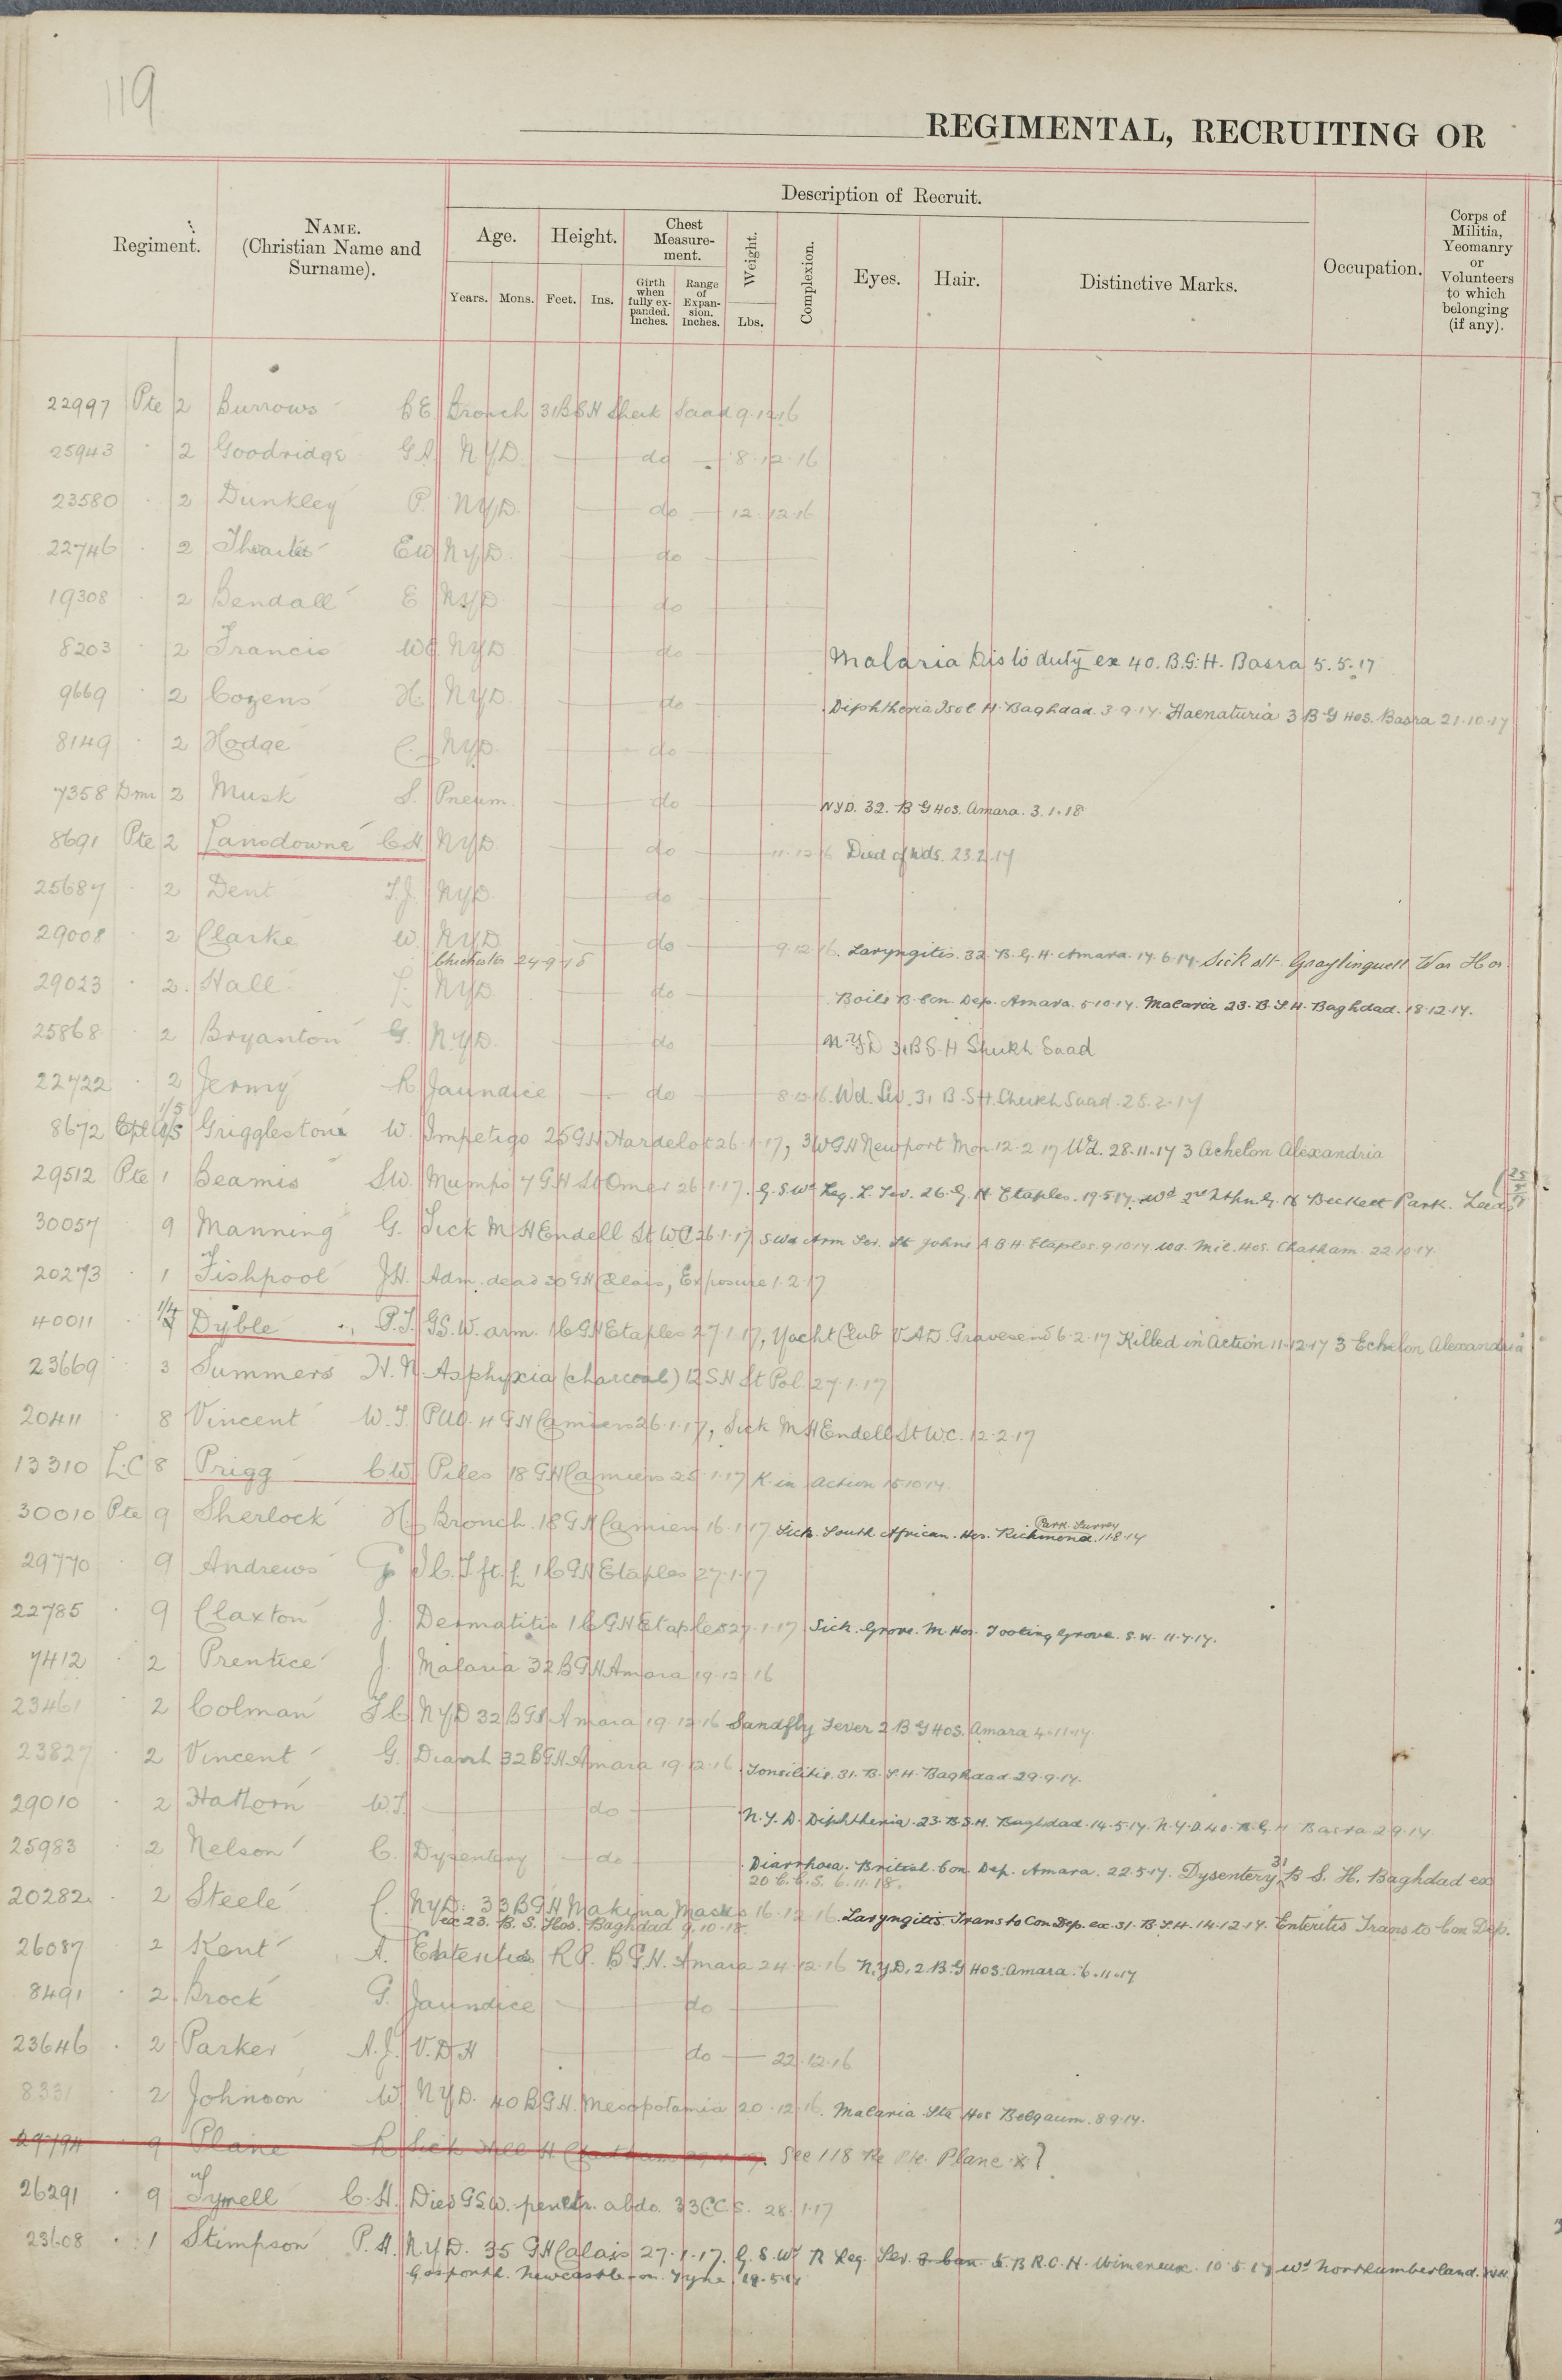 119
REGIMENTAL, RECRUITING OR
Regiment.
NAME.
(Christian Name and
Surname).
Description of Recruit.
Age.
Height.
Chest
Measure-
ment.
Weight.
Complexion.
Eyes.
Hair.
Distinctive Marks.
Occupation.
Corps of
Militia,
Yeomanry
or
Volunteers
to which
belonging
(if any).
Years.
Mons.
Feet.
Ins.
Girth
when
fully ex-
panded.
Inches.
Range
of
Expan-
sion.
Inches.
Lbs.
22997 Pte 2 Burrows B E Bronch 31 B S H Sheik Saad 9.12.16
25943 " 2 Goodridge G A N Y D — do — 8.12.16
23580 " 2 Dunkley P. N Y D. — do — 12.12.16
22746 " 2 Thwaites E W N Y D. — do —
19308 " 2 Bendall E N Y D — do —
8203 " 2 Francis W C N Y D — do — Malaria Dis to duty ex 40. B.G.H. Basra 5.5.17
9669 " 2 Cozens H. N Y D. — do — Diphtheria Isol H. Baghdad. 3.9.17. Haenaturia 3 B G Hos. Basra 21.10.17
8149 " 2 Hodge C. N Y D. — do —
7358 Dmr 2 Musk S. Pneum. — do — NYD. 32. B G Hos. Amara. 3.1.18
8691 Pte 2 Lansdowne C H N Y D. — do — 11.12.16 Died of Wds. 23.2.17
25687 " 2 Dent T.J. N Y D — do —
29008 " 2 Clarke W. N Y D — do — 9.12.16. Laryngitis. 32. B. G. H. Amara. 17.6.17. Sick Graylingwell War Hos.
Chichester 24-9-18
29023 " 2. Hall F. N Y D — do — Boils B. Con. Dep. Amara. 5.10.17. Malaria 23. B. S. H. Baghdad. 18.12.17.
25868 " 2 Bryanton G. N.Y.D. — do — N.Y.D 31 B S. H Sheikh Saad
22722 " 2 Jermy R. Jaundice — do — 8.12.16. Wd. Sev. 31 B. S H. Sheikh Saad. 25.2.17
1/5
8672 Cpl 1/5 Grigglestone W. Impetigo 25 G H Hardelot 26.1.17, 3 W G H Newport Mon 12.2.17 Wd. 28.11.17 3 Achelon Alexandria
29512 Pte 1 Beamis S W. Mumps 7 G H St Omer 26.1.17. G. S. Wd Leg. L. Sev. 26. G. H Etaples. 19.5.17. Wd 2nd Nthn. G. H Beckett Park. Leeds
30057 9 Manning G. Sick M H Endell St W.C 26.1.17 S Wd Arm Sev. St Johns A B H. Etaples. 9.10.17 Wd. Mil. Hos. Chatham. 22.10.17.
20273 " 1 Fishpool J H. Adm. dead 30 G H Calais, Exposure 1.2.17
40011 " 1/4 Dyble P.T. G S. W. arm. 16 G H Etaples 27.1.17, Yacht Club V A D. Gravesend 6.2.17 Killed in Action 11.12.17 3 Echelon Alexandria
23669 " 3 Summers H. N Asphyxia (charcoal) 12 S H St Pol. 27.1.17
20411 " 8 Vincent W. T. P U O. 4 G H Camiers 26.1.17, Sick M H Endell St W C. 12.2.17
13310 L.C 8 Prigg C W. Piles 18 G H Camiers 25.1.17 K. in Action 15.10.17
30010 Pte 9 Sherlock H. Bronch. 18 G H Camiers 16.1.17 Sick. South African. Hos. Richmond. Park. Surrey 1.8.17
29770 " 9 Andrews G I C. T ft. L 16 G H Etaples 27.1.17
22785 " 9 Claxton J. Dermatitis 16 G H Etaples 27.1.17 Sick. Grove. M. Hos. Tooting Grove. S. W. 11.7.17.
7412 " 2 Prentice J. Malaria 32 B G H Amara 19.12.16
23461 " 2 Colman F C N Y D 32 B G H Amara 19.12.16 Sandfly Fever 2 B G Hos. Amara 4.11.17.
23827 " 2 Vincent G. Diarrh 32 B G H Amara 19.12.16. Tonsilitis. 31. B. S. H. Baghdad 29.9.17.
29010 " 2 Hattorn W.T. — do — N. Y. D. Diphtheria. 23. B.S.H. Baghdad. 14.5.17. N. Y. D. 40. B. G. H Basra 2.9.17.
25983 2 Nelson C. Dysentery — do — Diarrhoea. British Con. Dep. Amara. 22.5.17. Dysentery 31 B S. H. Baghdad ex
20 C. C. S. 6.11.18.
20282 " 2 Steele C. N Y D. 33 B G H Makina Masus 16.12.16. Laryngitis. Trans to Con Dep. ex. 31. B. S. H. 14.12.17. Enteritis Trans to Con Dep.
ex 23. B. S. Hos. Baghdad 9.10.18
26087 " 2 Kent A. Enteritis R. P. B G H. Amara 24.12.16 N. Y. D. 2. B. G Hos. Amara. 6.11.17
8491 " 2 Brock G. Jaundice — do —
23646 " 2 Parker A. J. V. D H — do — 22.12.16
8331 " 2 Johnson W. N Y D. 40 B G H. Mesopotamia 20.12.16. Malaria Sta Hos Belgaum. 8.9.17.
29794 " 9 Plane R Sick Mil H Chatham See 118 Re Pte. Plane x ?
26291 " 9 Tyrrell C. H. Died G S W. penetr. abdo. 33 C C S. 28.1.17
23608 " 1 Stimpson P. H. N. Y D. 35 G H Calais 27.1.17. G. S. Wd R Leg. Sev. 3 Can. 5. B R. C. H. Wimereux. 10.5.17 Wd Northumberland. W H.
Gosforth. Newcastle-on-Tyne. 19.5.17